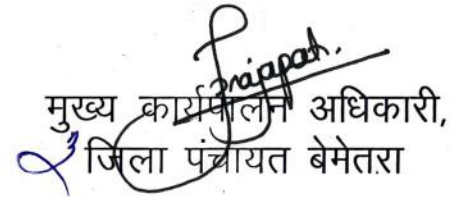 Prajapati.
मुख्य कार्यपालन अधिकारी,
जिला पंचायत बेमेतरा